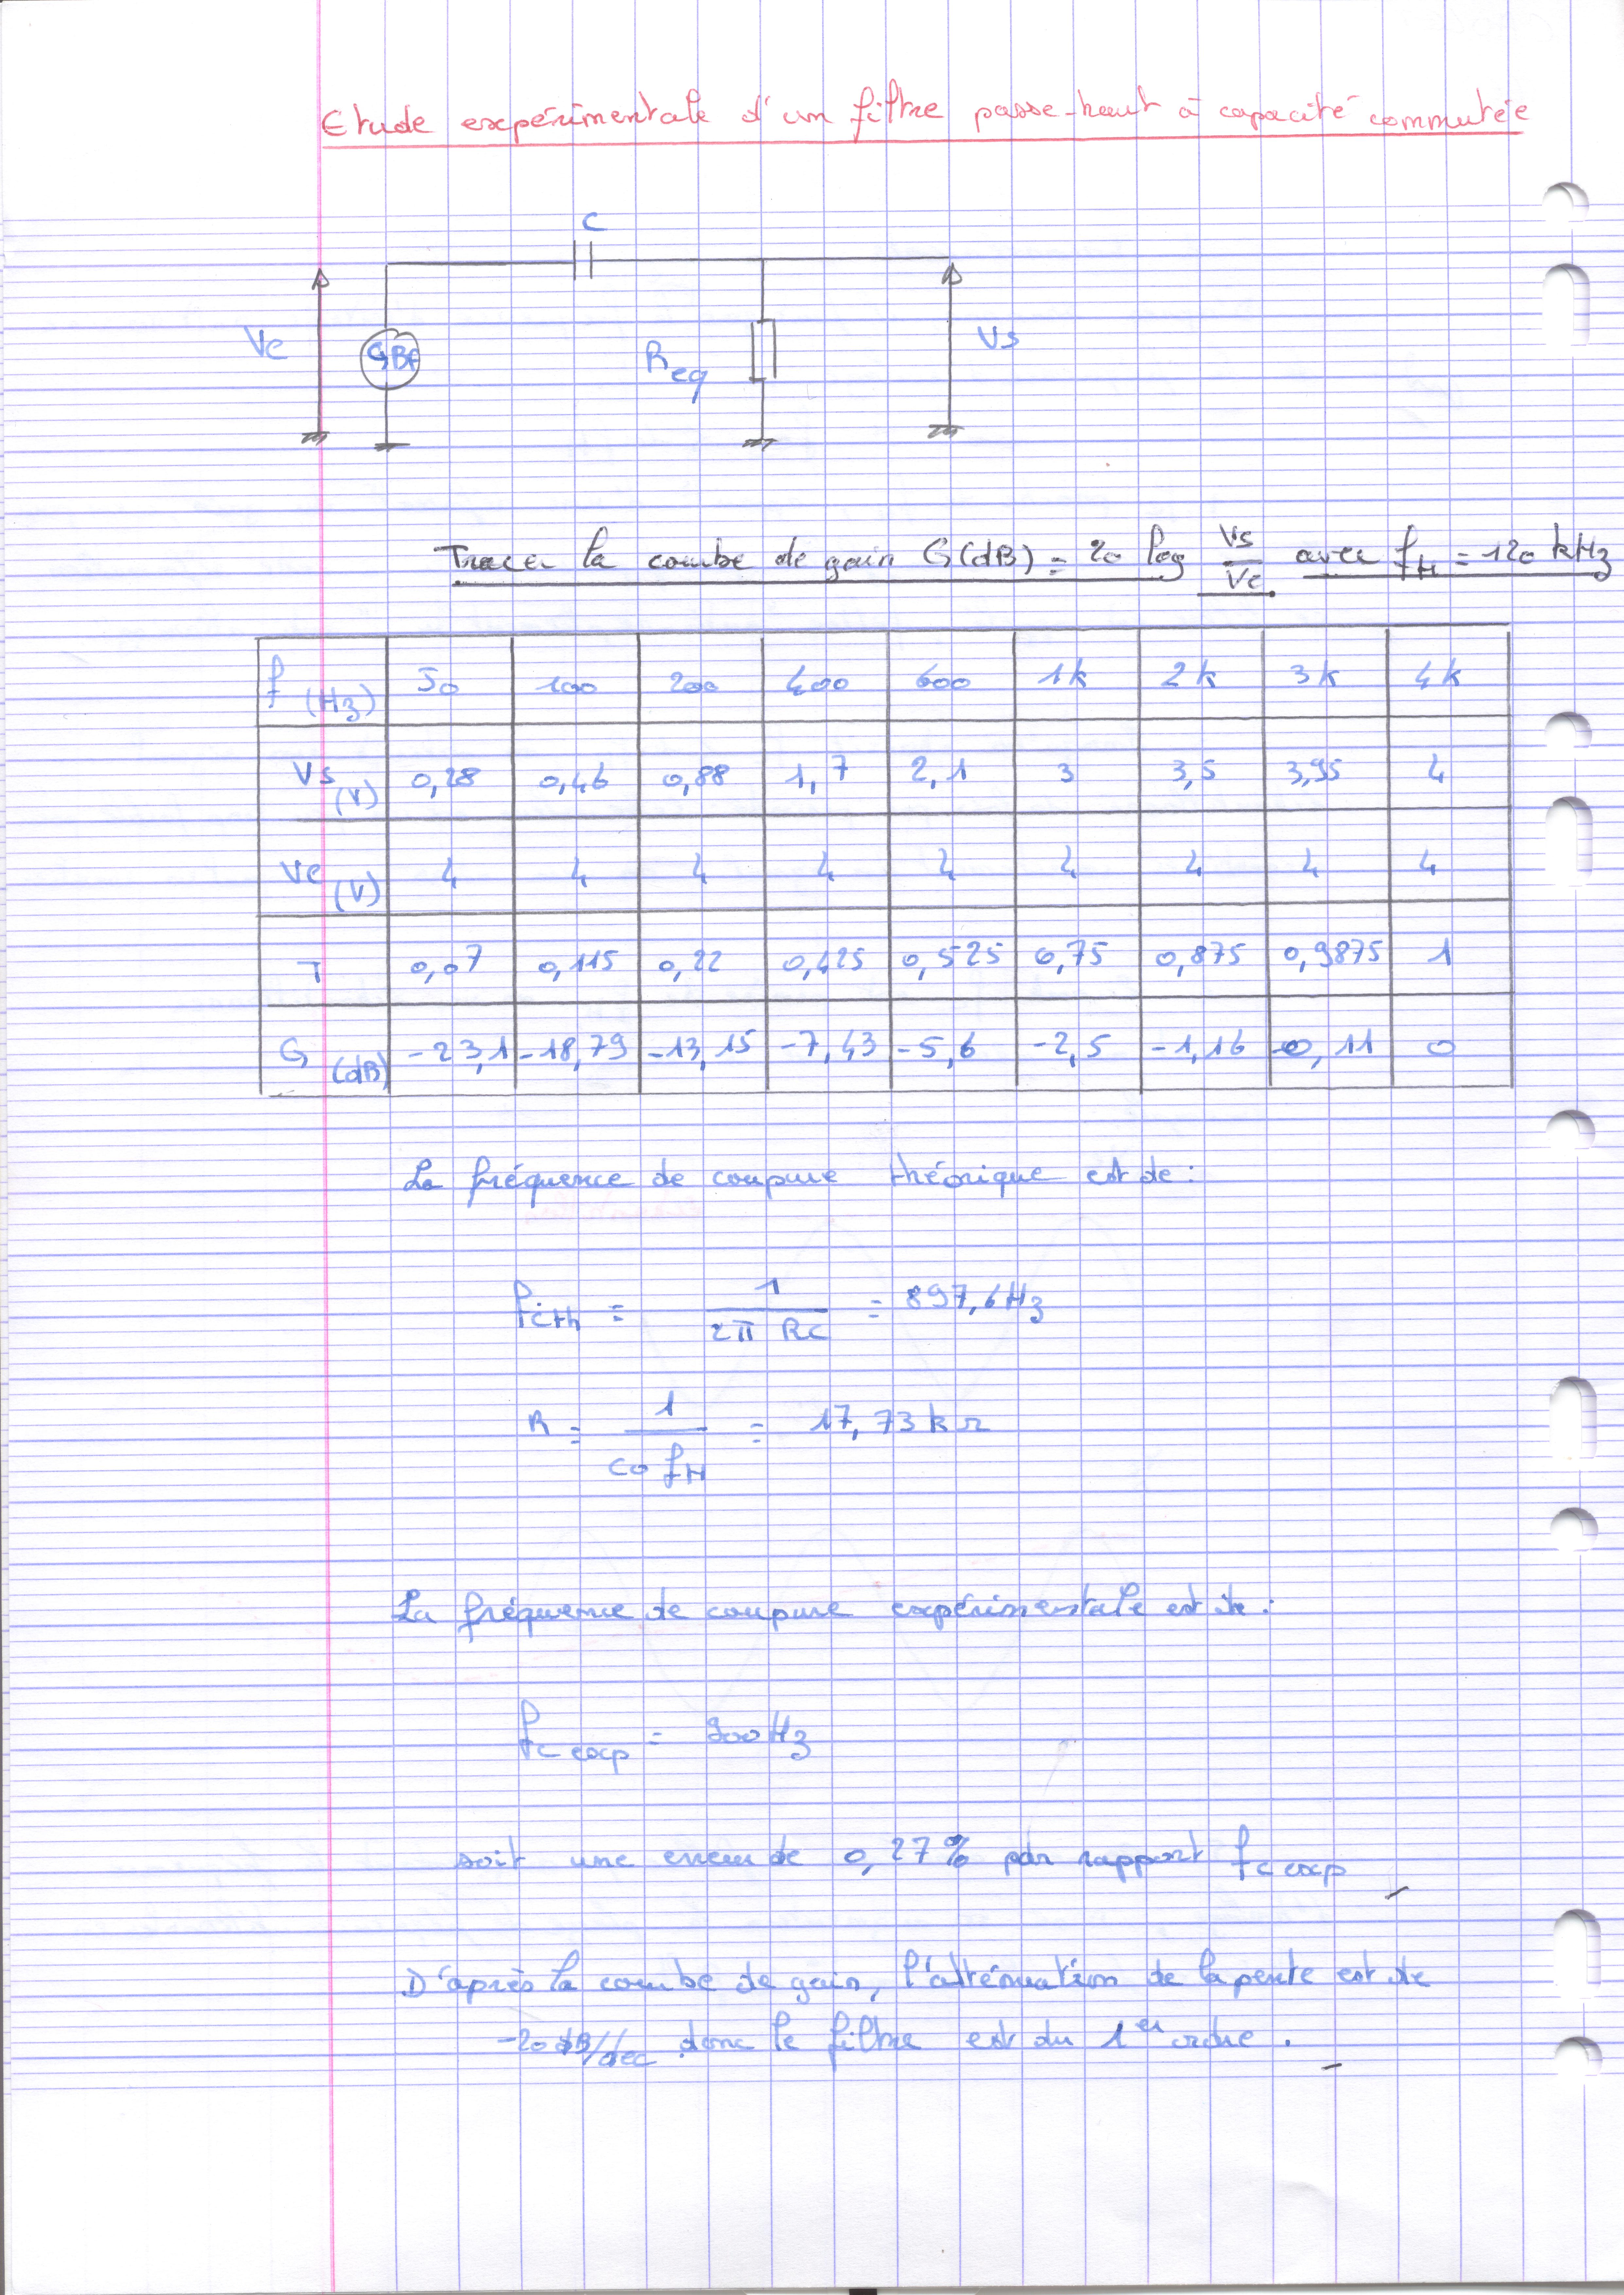 Etude expérimentale d'un filtre passe-haut à capacité commutée
C
Ve
GBF
Req
Vs
Tracer la courbe de gain G(dB) = 20 log Vs/Ve avec fH = 120 kHz.
f (Hz) 50 100 200 400 600 1k 2k 3k 4k
Vs (V) 0,28 0,46 0,88 1,7 2,1 3 3,5 3,95 4
Ve (V) 4 4 4 4 4 4 4 4 4
T 0,07 0,115 0,22 0,425 0,525 0,75 0,875 0,9875 1
G (dB) -23,1 -18,79 -13,15 -7,43 -5,6 -2,5 -1,16 -0,11 0
La fréquence de coupure théorique est de :
fcth = 1/(2π RC) = 897,6 Hz
R = 1/(Co fH) = 17,73 kΩ
La fréquence de coupure expérimentale est de :
fc exp = 900 Hz
soit une erreur de 0,27% par rapport fc exp
D'après la courbe de gain, l'atténuation de la pente est de
-20 dB/dec donc le filtre est du 1er ordre.